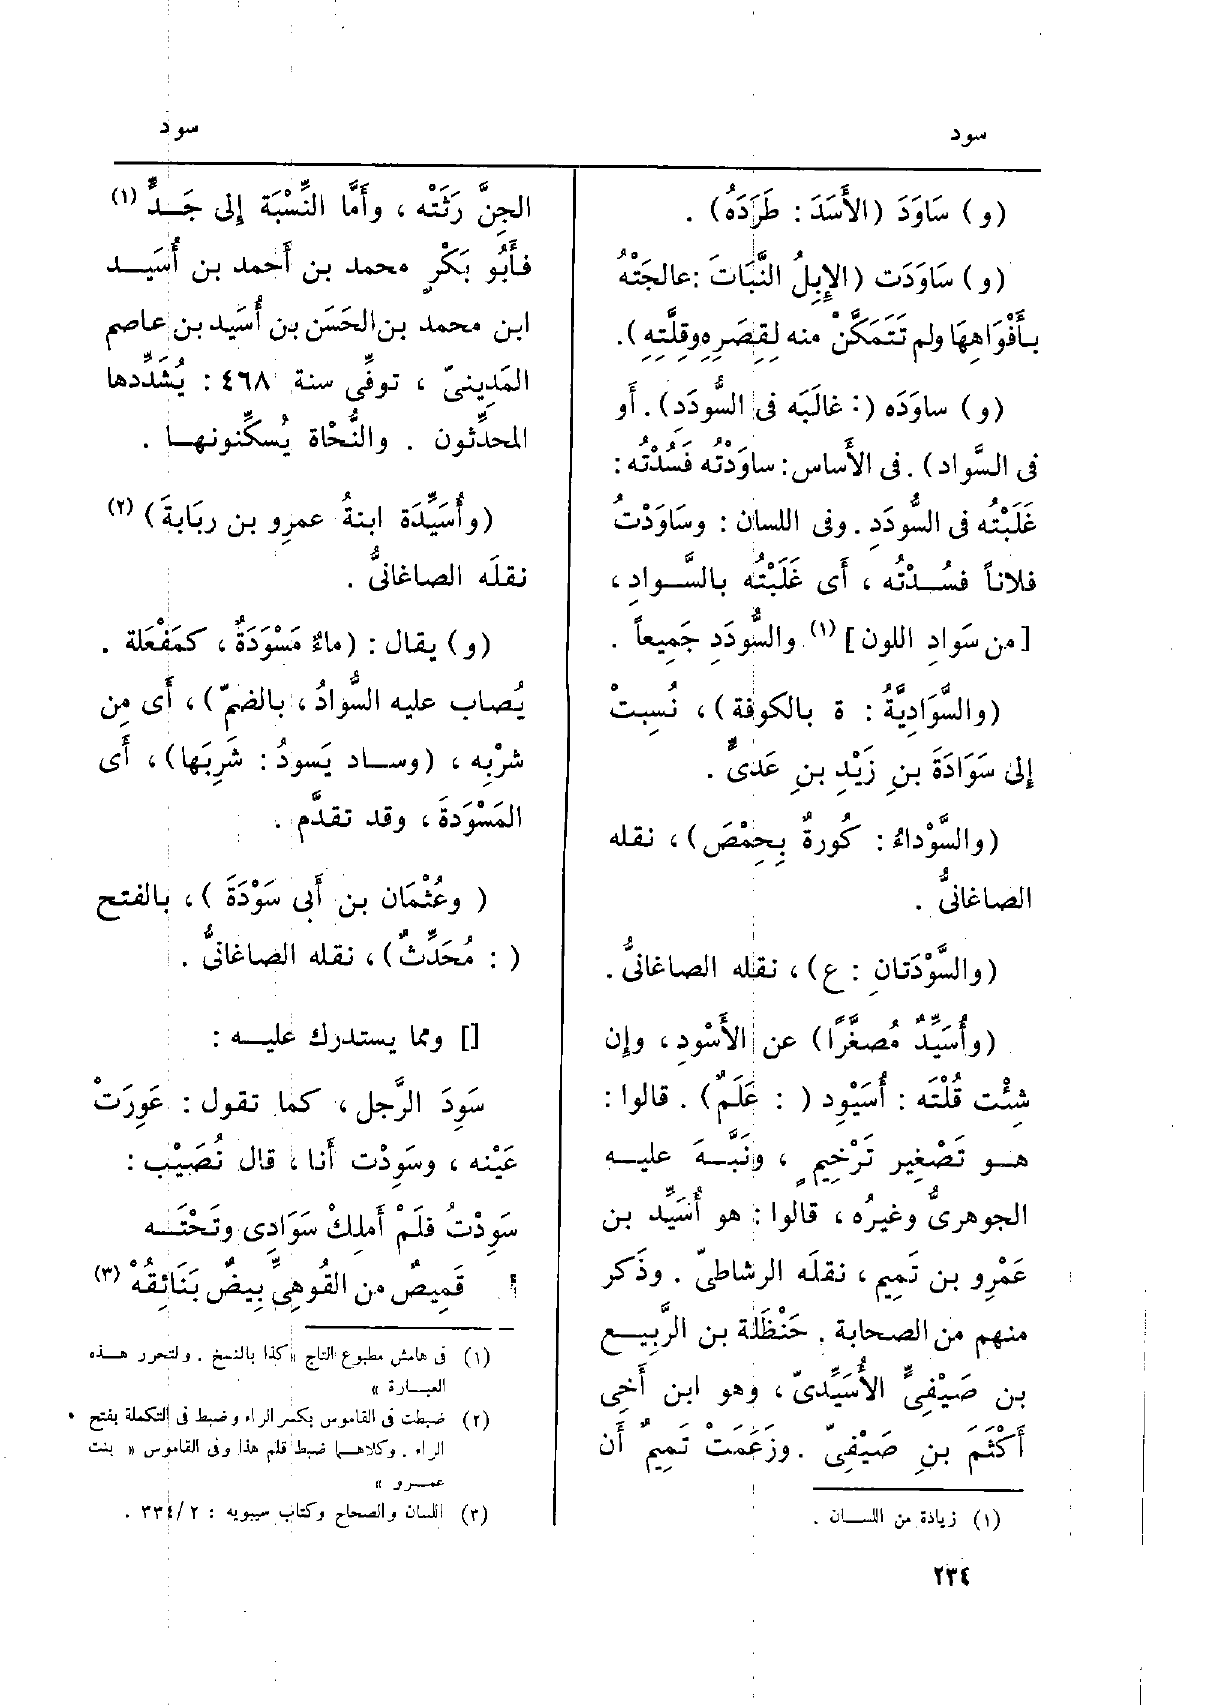 سود
سود
(و) سَاوَدَ (الأَسَدَ: طَرَدَهُ) .
(و) سَاوَدَت (الإِبِلُ النَّبَاتَ :عالجَتْهُ
بأَفْوَاهِهَا ولم تَتَمَكَّنْ منه لِقِصَرِه وقِلَّتِهِ).
(و) ساوَدَه (: غالَبَه فى السُّودَدِ) . أَو
فى السَّواد) . فى الأَساس: ساوَدْتُه فَسُدْتُه :
غَلَبْتُه فى السُّودَدِ . وفى اللسان : وسَاوَدْتُ
فلاناً فسُـدْتُه ، أَى غَلَبْتُه بالسَّـوادِ ،
[من سَوادِ اللون] (١) والسُّودَدِ جَمِيعاً .
(والسَّوَّادِيَّةُ : ة بالكوفة) ، نُسِبتْ
إِلى سَوَادَةَ بنِ زَيْدِ بنِ عَدىٍّ .
(والسَّوْداءُ : كُورةٌ بِحِمْصَ) ، نقله
الصاغانىُّ .
(والسَّوْدَتانِ : ع) ، نقله الصاغانىُّ .
(وأُسَيِّدٌ مُصغَّرًا) عن الأَسْودِ ، وإِن
شِئْت قُلْتَه : أُسَيْوِد ( : عَلَمٌ) . قالوا :
هـو تَصْغِير تَرْخِيمٍ ، ونَبَّـهَ عليـه
الجوهرىُّ وغيرُه ، قالوا : هو أُسَيِّد بن
عَمْرِو بن تَمِيم ، نقلَه الرشاطىّ . وذَكر
منهم من الصحابة . حَنْظَلة بن الرَّبيـع
بن صَيْفِىٍّ الأُسَيِّدىّ ، وهو ابن أَخِى
أَكْثَمَ بنِ صَيْفِىّ . وزَعَمَتْ تَمِيمٌ أَن
(١) زيادة من اللسـان .
الجِنَّ رَثَتْه ، وأَمَّا النِّسْبَة إِلى جَـدٍّ (١)
فأَبُو بَكْرٍ محمد بن أَحمد بن أُسَيـد
ابن محمد بن الحَسَن بن أُسَيد بن عاصم
المَدِينىّ ، توفِّى سنة ٤٦٨ : يُشَدِّدها
المحدِّثون . والنُّحْاة يُسكِّنونهـا .
(وأُسَيِّدَة ابنةُ عمرِو بن ربَابةَ) (٢)
نقلَه الصاغانىُّ .
(و) يقال : (ماءٌ مَسْوَدَةٌ ، كمَفْعَلة .
يُصاب عليه السُّوادُ ، بالضمّ) ، أَى مِن
شرْبِه ، (وسـاد يَسودُ : شَرِبَها) ، أَى
المَسْوَدةَ ، وقد تقدَّم .
( وعُثْمَان بن أَبى سَوْدَةَ ) ، بالفتح
( : مُحَدِّثٌ) ، نقله الصاغانىُّ .
[] ومما يستدرك عليـه :
سَوِدَ الرَّجل ، كما تقول : عَوِرَتْ
عَيْنه ، وسَوِدْت أَنا ، قال نُصَيْب :
سَوِدْتُ فلَمْ أَملِكْ سَوَادِى وتَحْتَـه
قَمِيصٌ من القُوهِىِّ بِيضٌ بَنَائِقُهْ (٣)
(١) فى هامش مطبوع التاج «كذا بالنسخ . ولتحرر هـذه
العبـارة »
(٢) ضبطت فى القاموس بكسر الراء وضبط فى التكملة بفتح
الراء . وكلاهـا ضبط قلم هذا وفى القاموس « بنت
عمـرو »
(٣) اللسان والصحاح وكتاب سيبويه : ٢ /٣٣٤ .
٢٣٤